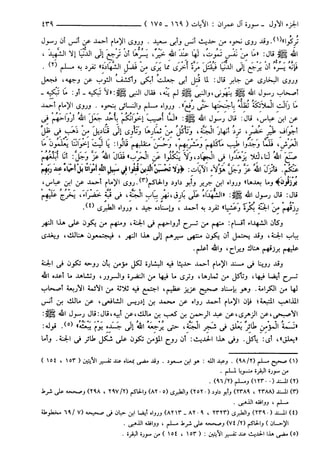 الجزء الأول ـ سورة آل عمران : الآيات ( ١٦٩ ـ ١٧٥ ) ٤٣٩
تُركوا»(١). وقد روي نحوه من حديث أنس وأبي سعيد . وروى الإمام أحمد عن أنس أن رسول
الله ﷺ قال: «ما مِنْ نَفسٍ تموتُ، لها عند الله خيرٌ، يسرُّها أنْ تَرجعَ إلى الدُّنيا إلا الشَّهيدُ ،
فإنه يسرُّه أنْ يرجعَ إلى الدُّنيا فيُقتلَ مرَّةً أخرى مما يرى من فَضلِ الشهادةِ» تفرد به مسلم (٢) .
وروى البخاري عن جابر قال: لما قُتل أبي جعلتُ أبكي وأكشفُ الثوبَ عن وجهه، فجعل
أصحاب رسول الله ﷺ ينهَونني، والنبي ﷺ لم يَنْهَ، فقال النبي ﷺ: «لا تَبْكيه ـ أو: ما تَبْكيه ـ
ما زَالَتِ الملائكةُ تُظلُّه بأجنحتِها حتَّى رُفِعَ». ورواه مسلم والنسائي بنحوه. وروى الإمام أحمد
عن ابن عباس، قال: قال رسول الله ﷺ: «لمَّا أُصيبَ إخوانُكُم بأُحُدٍ جعلَ اللهُ أرواحَهُم في
أجوافِ طَيرٍ خُضرٍ، تردُ أنهارَ الجنَّةِ، وتأكلُ مِنْ ثمارِها وتأوي إلى قناديلَ مِنْ ذهبٍ في ظلِّ
العَرشِ، فلمَّا وجدوا طيبَ مأكلِهم ومشربِهم، وحسنَ منقلبِهم قالوا: يا ليتَ إخوانَنا يعلمونَ ما
صنعَ اللهُ لنا، لئلا يزهدوا في الجهادِ، ولا ينكُلوا عن الحربِ» فقال اللهُ عزَّ وجلَّ: أنا أُبلِّغهم
عنكُم، فأنزلَ اللهُ عزَّ وجلَّ هؤلاءِ الآيات: ﴿وَلَا تَحْسَبَنَّ الَّذِينَ قُتِلُوا فِي سَبِيلِ اللَّهِ أَمْوَاتًا بَلْ أَحْيَاءٌ عِندَ رَبِّهِمْ
يُرْزَقُونَ﴾ وما بعدها» ورواه ابن جرير وأبو داود والحاكم(٣). وروى الإمام أحمد عن ابن عباس،
قال: قال رسول الله ﷺ: «الشُّهداءُ على بارقِ، نهرٍ ببابِ الجنَّةِ، في قُبَّةٍ خضراءَ، يَخرجُ عليهم
رِزقُهم مِنَ الجنةِ بُكرةً وعَشِياً» تفرد به أحمد ، وإسناده جيد ، ورواه الطبري (٤).
وكأن الشهداء أقسام: منهم من تسرح أرواحهم في الجنة، ومنهم من يكون على هذا النهر
بباب الجنة، وقد يحتمل أن يكون منتهى سيرهم إلى هذا النهر ، فيجتمعون هنالك، ويغدى
عليهم برزقهم هناك ويراح، والله أعلم.
وقد روينا في مسند الإمام أحمد حديثاً فيه البشارة لكل مؤمن بأن روحه تكون في الجنة
تسرح أيضا فيها، وتأكل من ثمارها، وترى ما فيها من النضرة والسرور، وتشاهد ما أعده الله
لها من الكرامة. وهو بإسناد صحيح عزيز عظيم، اجتمع فيه ثلاثة من الأئمة الأربعة أصحاب
المذاهب المتبعة؛ فإن الإمام أحمد رواه عن محمد بن إدريس الشافعي، عن مالك بن أنس
الأصبحي، عن الزهري، عن عبد الرحمن بن كعب بن مالك، عن أبيه، قال: قال رسول الله ﷺ:
«نَسَمةُ المؤمنِ طائرٌ يَعلقُ في شَجرِ الجنَّةِ، حتى يرجعَه اللهُ إلى جَسدِهِ يومَ يبعثُه» (٥). قوله:
«يعلق»، أي: يأكل. وفي هذا الحديث: أن روح المؤمن تكون على شكل طائر في الجنة. وأما
(١) صحيح مسلم (٩٨/٢) . وعبد الله : هو ابن مسعود . وقد مضى بمعناه عند تفسير الآيتين ( ١٥٣ ، ١٥٤ )
من سورة البقرة منسوبا لمسلم .
(٢) المسند ( ١٢٣٠٠ ) ومسلم ( ٩٦/٢ ) .
(٣) المسند ( ٢٣٨٨ ، ٢٣٨٩ ) وأبو داود ( ٢٥٢٠ ) والطبري ( ٨٢٠٥ ) والحاكم ( ٢٩٧/٢ ، ٢٩٨ ) وصححه على شرط
مسلم ، ووافقه الذهبي .
(٤) المسند ( ٢٣٩٠ ) والطبري ( ٢٣٢٣ ، ٨٢٠٩ ـ ٨٢١٣ ) ورواه أيضا ابن حبان في صحيحه ( ٦٩/٧ ) مخطوطة
الإحسان ) والحاكم ( ٧٤/٢ ) وصححه على شرط مسلم ، ووافقه الذهبي .
(٥) مضى هذا الحديث عند تفسير الآيتين : ( ١٥٣ ، ١٥٤ ) من سورة البقرة .